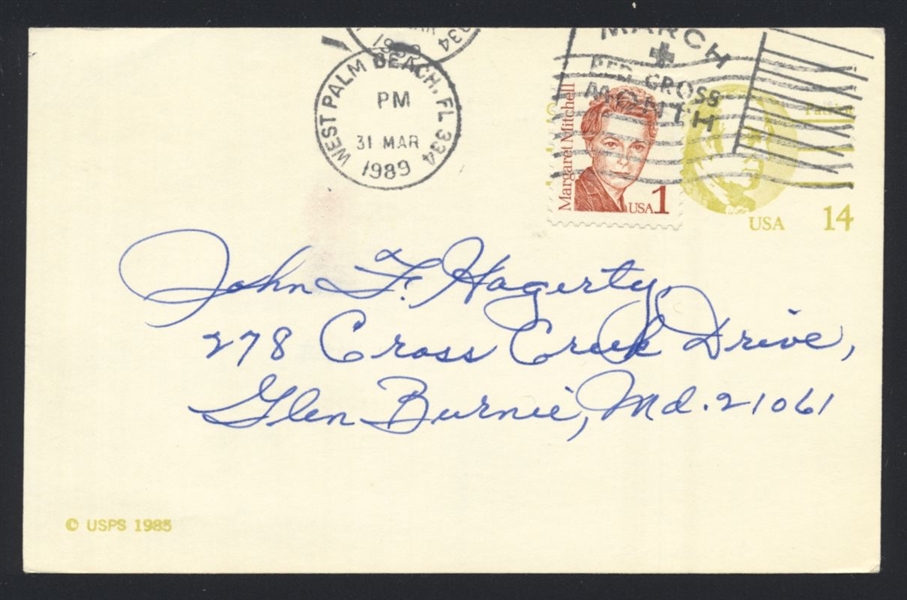 WEST PALM BEACH, FL 334
PM
31 MAR
1989
334
MARCH
RED CROSS
MONTH
Margaret Mitchell
USA 1
USA 14
John F. Hagerty,
278 Cross Creek Drive,
Glen Burnie, Md. 21061
© USPS 1985